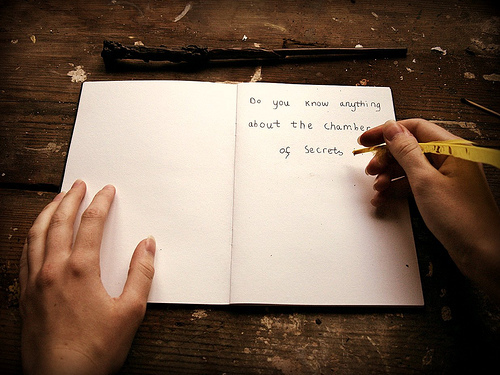 Do you know anything
about the chamber
of Secrets